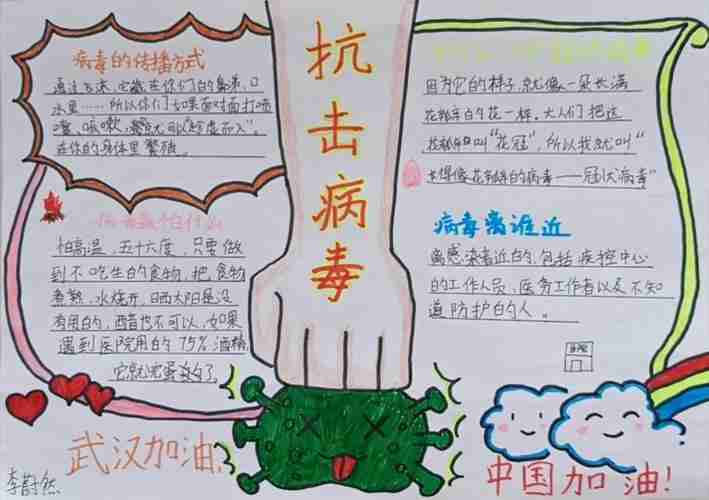 病毒的传播方式
水里……所以你们如果面对面打喷
嚏、咳嗽,
在你的身体里繁殖。
怕什么
怕高温,五十六度,只要做
到不吃生的食物,把食物
煮熟,水烧开,日晒太阳是没
有用的,醋也不可以,如果
遇到医院用的75%酒精,
它就完蛋了
武汉加油!
李蔚然
抗击病毒
因为它的样子就像一朵长满
花瓣的花一样。大人们把这
花瓣叫"花冠",所以我就叫"
长得像花瓣的病毒——冠状病毒"
病毒离谁近
离感染者近的,包括疾控中心
的工作人员,医务工作者以及不知
道防护的人。
中国加油!